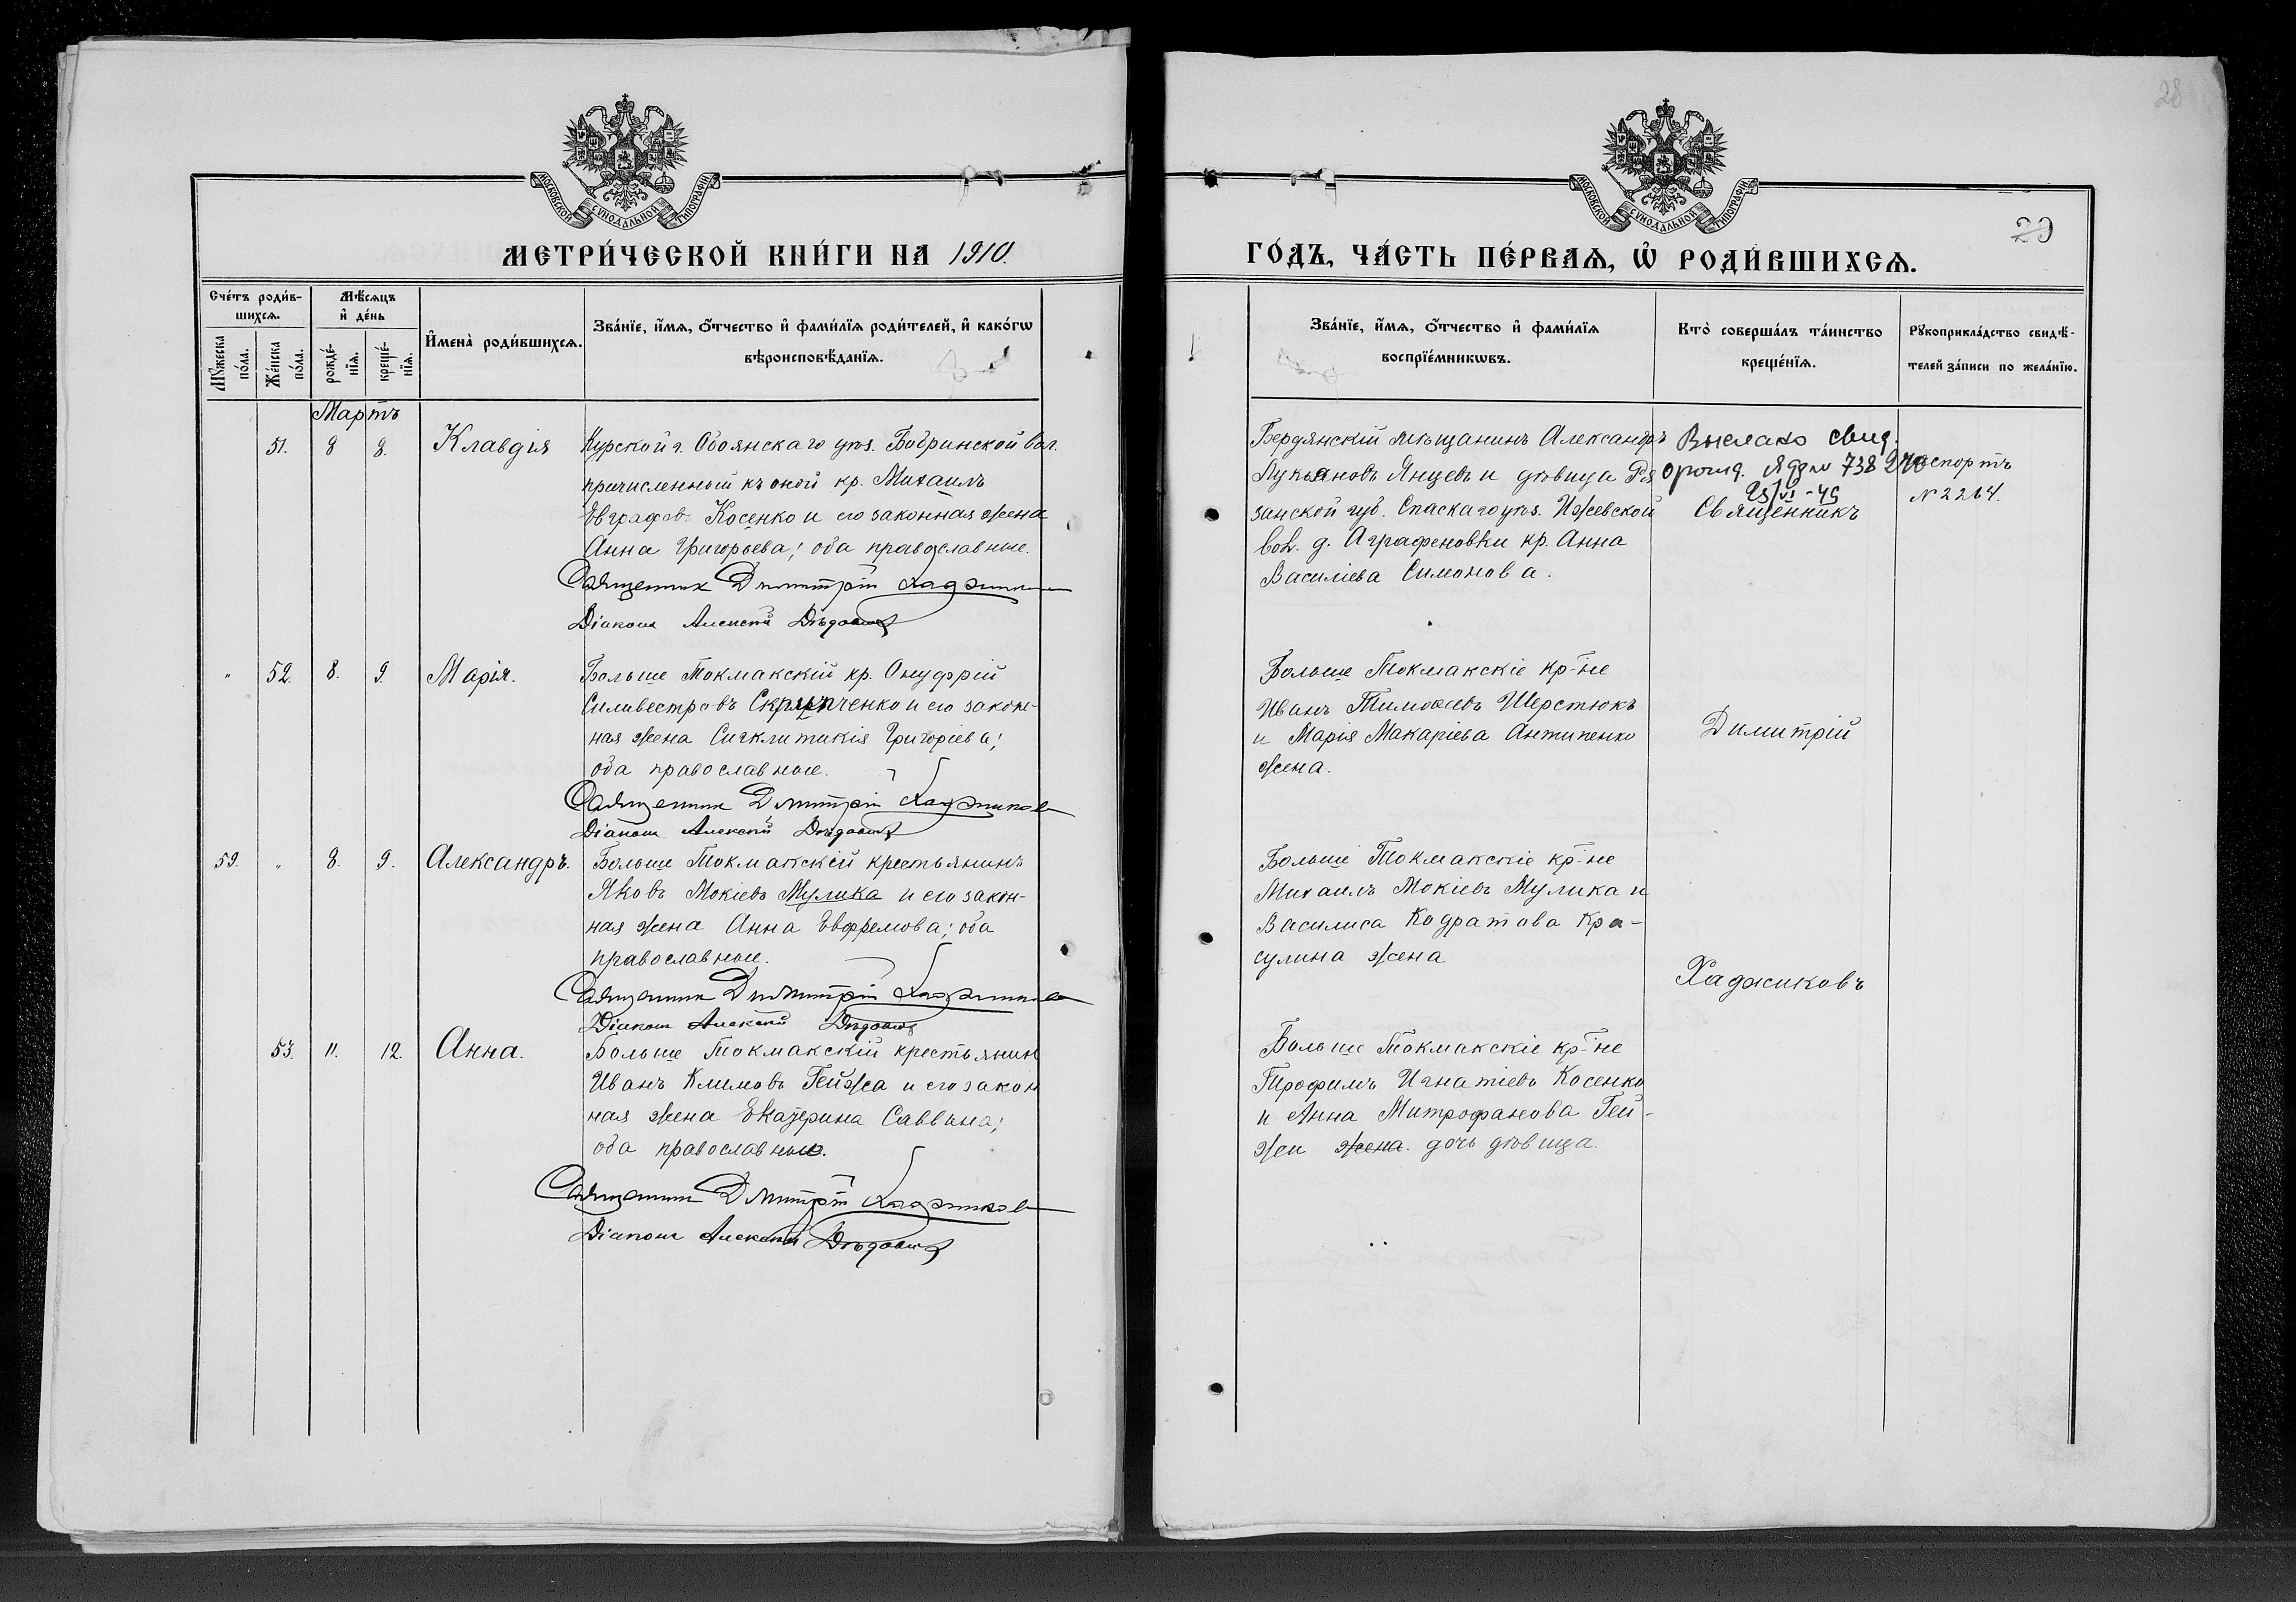 28
МОСКОВСКОЙ СѴНОДАЛЬНОЙ ТИПОГРАФІИ
МОСКОВСКОЙ СѴНОДАЛЬНОЙ ТИПОГРАФІИ
29
МЕТРИ́ЧЕСКОЙ КНИ́ГИ НА 1910.
ГО́ДЪ, ЧА́СТЬ ПЕ́РВАѦ, Ѡ҆ РОДИ́ВШИХСѦ.
Сче́тъ роди́в-
шихсѧ.
Мꙋ́жеска
по́ла.
Же́нска
по́ла.
Мѣ́сѧцъ
и҆ де́нь
рожде́-
нїѧ.
креще́-
нїѧ.
И҆мена̀ роди́вшихсѧ.
Зва́нїе, и҆́мѧ, ѻ҆́тчество и҆ фами́лїѧ роди́телей, и҆ како́гѡ
вѣроисповѣ́данїѧ.
Зва́нїе, и҆́мѧ, ѻ҆́тчество и҆ фами́лїѧ
воспрїе́мникѡвъ.
Кто̀ соверша́лъ та́инство
креще́нїѧ.
Рꙋкоприкла́дство свидѣ́-
телей за́писи по жела́нїю.
Мартъ
51. 8 8. Клавдія
Курской г. Обоянскаго уѣз. Бобринской вол.
причисленный къ оной кр. Михаилъ
Евграфовъ Косенко и его законная жена
Анна Григорьева; оба православные.
Священник Димитрій Хаджиковъ
Діакон Алексѣй Дѣдович
Бердянскій мѣщанинъ Александръ
Лукьяновъ Янцевъ и дѣвица Ря
занской губ. Спаскаго уѣз. Ижевской
вол. д. Аграфеновки кр. Анна
Василіева Симонова.
Выслано свид.
о рожд. 738270
25/VI-49
Священникъ
паспортъ
№ 2264.
" 52. 8. 9. Марія.
Больше Токмакскій кр. Онуфрій
Силивестровъ Скрипченко и его закон-
ная жена Сигклитикія Григоріева;
оба православные.
Священник Димитрій Хаджиковъ
Діакон Алексѣй Дѣдович
Больше Токмакскіе кр-не
Иванъ Тимоѳеевъ Шерстюкъ
и Марія Макаріева Антипенко
жена.
Димитрій
59. " 8. 9. Александръ.
Больше Токмакскій крестьянинъ
Яковъ Мокіевъ Мулика и его закон-
ная жена Анна Евфремова; оба
православные.
Священник Димитрій Хаджиковъ
Діакон Алексѣй Дѣдович
Больше Токмакскіе кр-не
Михаилъ Мокіевъ Мулика и
Василиса Кодратова Кра-
сулина жена
Хаджиковъ
53. 11. 12. Анна.
Больше Токмакскій крестьянин
Иванъ Климовъ Гейжа и его закон
ная жена Екатерина Саввина;
оба православные.
Священник Димитрій Хаджиковъ
Діакон Алексѣй Дѣдович
Больше Токмакскіе кр-не
Трофимъ Игнатіевъ Косенко
и Анна Митрофанова Гей-
жи жена. дочь дѣвица.